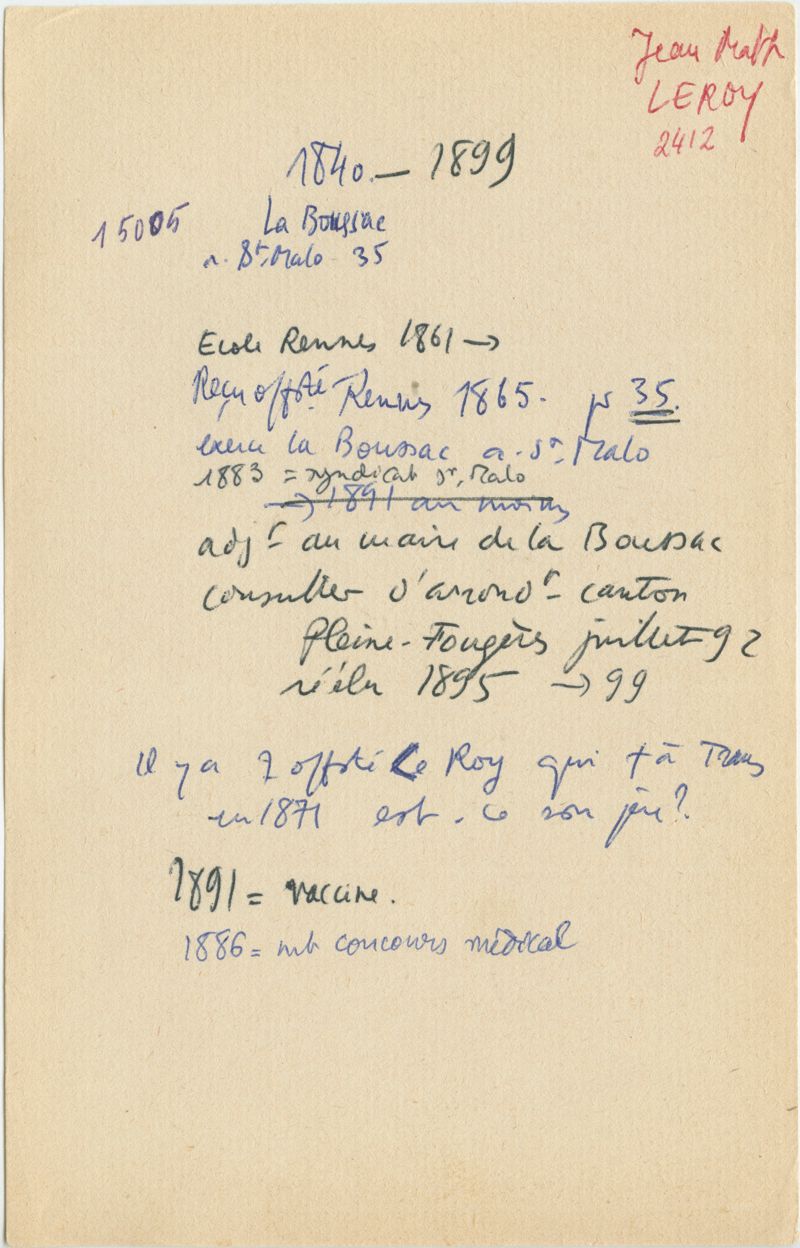 Jean Math
LEROY
2412
1840 — 1899
15005 La Boussac
a. St. Malo 35
Ecole Rennes 1861 →
Reçu offté Rennes 1865. pr 35.
exerce la Boussac a. St. Malo
1883 = syndicat St. Malo
→ 1891 au moins
adjt au maire de la Boussac
conseiller d'arrondt - canton
Pleine-Fougères juillet 92
réélu 1895 → 99
Il y a 1 offté Le Roy qui + à Trans
en 1871 est-ce son père?
1891 = vaccine.
1886 = mb concours médical